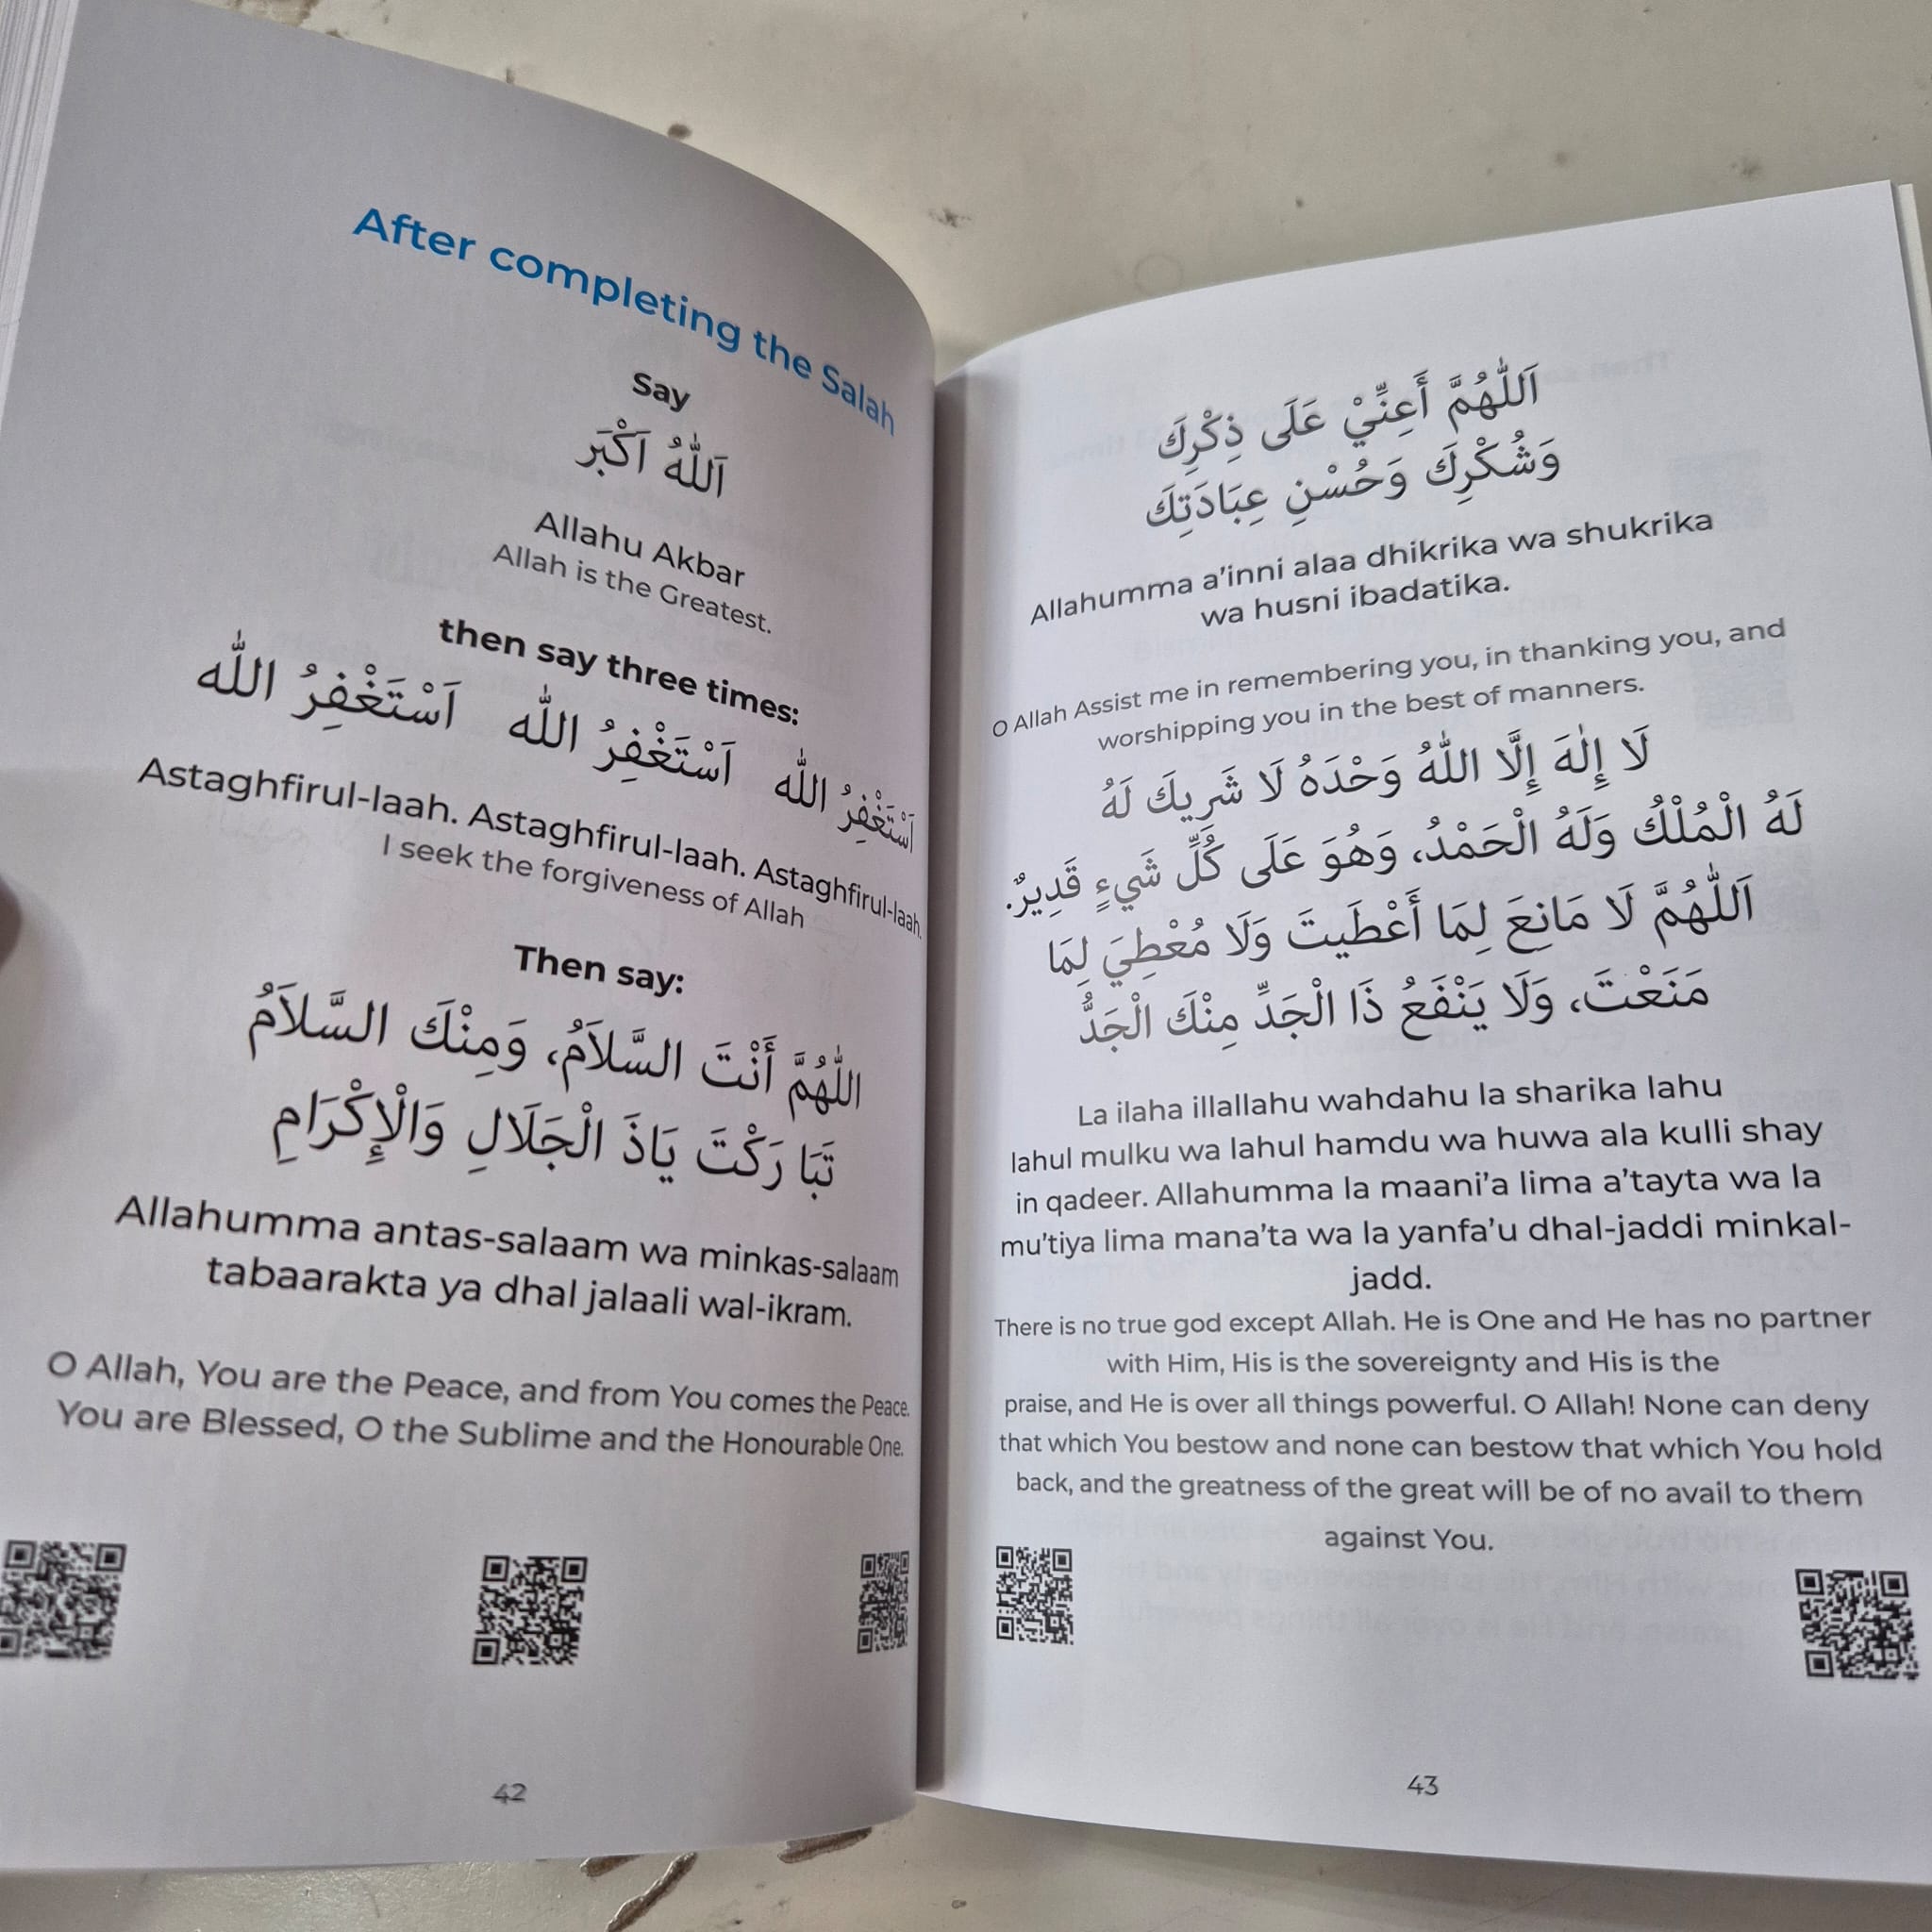 After completing the Salah
Say
اَللّٰهُ اَكْبَر
Allahu Akbar
Allah is the Greatest.
then say three times:
اَسْتَغْفِرُ اللّٰه اَسْتَغْفِرُ اللّٰه اَسْتَغْفِرُ اللّٰه
Astaghfirul-laah. Astaghfirul-laah. Astaghfirul-laah.
I seek the forgiveness of Allah
Then say:
اللّٰهُمَّ أَنْتَ السَّلاَمُ، وَمِنْكَ السَّلاَمُ
تَبَا رَكْتَ يَاذَ الْجَلَالِ وَالْإِكْرَامِ
Allahumma antas-salaam wa minkas-salaam
tabaarakta ya dhal jalaali wal-ikram.
O Allah, You are the Peace, and from You comes the Peace.
You are Blessed, O the Sublime and the Honourable One.
42
اَللّٰهُمَّ أَعِنِّيْ عَلَى ذِكْرِكَ
وَشُكْرِكَ وَحُسْنِ عِبَادَتِكَ
Allahumma a'inni alaa dhikrika wa shukrika
wa husni ibadatika.
O Allah Assist me in remembering you, in thanking you, and
worshipping you in the best of manners.
لَا إِلٰهَ إِلَّا اللّٰهُ وَحْدَهُ لَا شَرِيكَ لَهُ
لَهُ الْمُلْكُ وَلَهُ الْحَمْدُ، وَهُوَ عَلَى كُلِّ شَيءٍ قَدِيرٌ.
اَللّٰهُمَّ لَا مَانِعَ لِمَا أَعْطَيتَ وَلَا مُعْطِيَ لِمَا
مَنَعْتَ، وَلَا يَنْفَعُ ذَا الْجَدِّ مِنْكَ الْجَدُّ
La ilaha illallahu wahdahu la sharika lahu
lahul mulku wa lahul hamdu wa huwa ala kulli shay
in qadeer. Allahumma la maani'a lima a'tayta wa la
mu'tiya lima mana'ta wa la yanfa'u dhal-jaddi minkal-
jadd.
There is no true god except Allah. He is One and He has no partner
with Him, His is the sovereignty and His is the
praise, and He is over all things powerful. O Allah! None can deny
that which You bestow and none can bestow that which You hold
back, and the greatness of the great will be of no avail to them
against You.
43